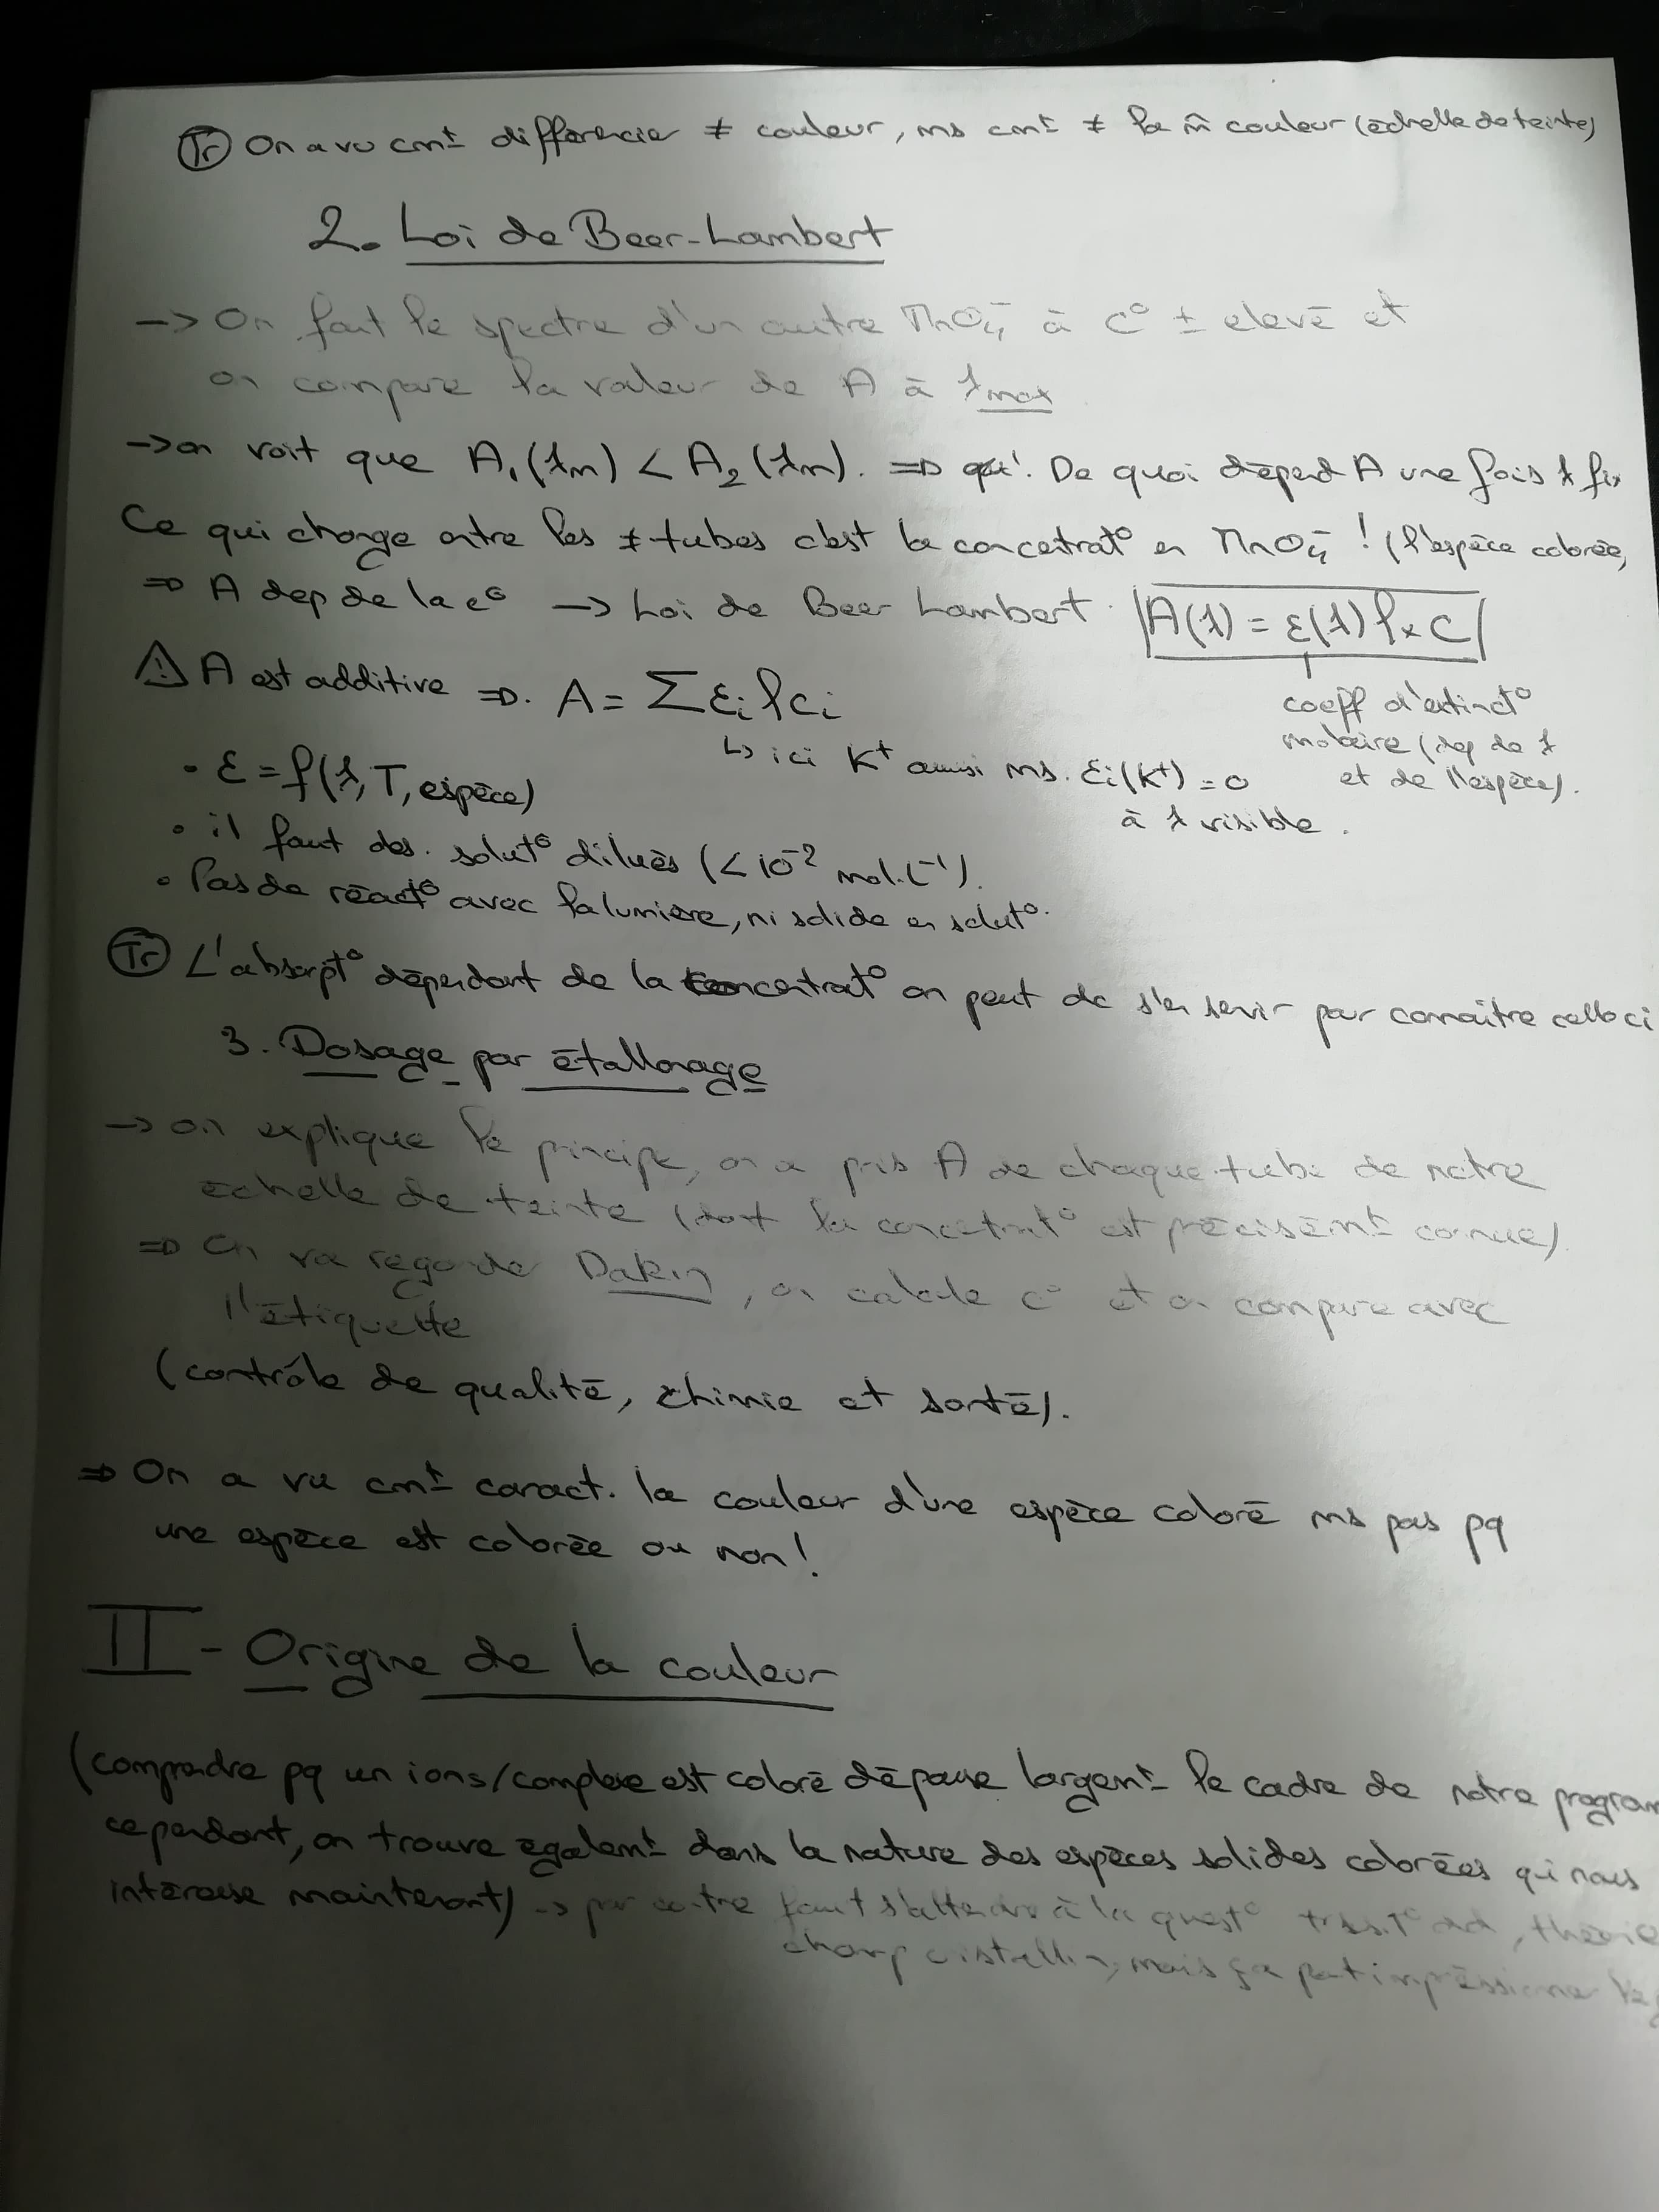 (Tr) On a vu cmt différencier ≠ couleur, ms cmt ≠ la m̂ couleur (échelle de teinte)
2. Loi de Beer-Lambert
-> On fait le spectre d'un autre MnO₄⁻ à c° ± élevé et
on compare la valeur de A à λmax
-> on voit que A₁(λm) < A₂(λm). => De quoi dépend A une fois λ fix
Ce qui change entre les ≠ tubes c'est la concentrat° en MnO₄⁻ ! (l'espèce colorée,
=> A dep de la c° -> Loi de Beer Lambert. |A(λ) = ε(λ) l × C|
⚠ A est additive => A = Σ εi l ci
coeff d'extinct°
molaire (dep de λ
et de l'espèce).
↳ ici K⁺ aussi ms. εi(K⁺) = 0
à λ visible.
• ε = f(λ, T, espèce)
• il faut des. solut° diluées (< 10⁻² mol.L⁻¹).
• Pas de réact° avec la lumière, ni solide en solut°.
(Tr) L'absorpt° dépendant de la concentrat° on peut dc s'en servir pour connaître celle ci
3. Dosage par étallonage
-> on explique le principe, on a pris A de chaque tube de notre
échelle de teinte (dont la concentrat° est précisémt connue)
=> On va regarde Dakin, on calcule c° et on compare avec
l'étiquette
(contrôle de qualité, chimie et santé).
=> On a vu cmt caract. la couleur d'une espèce coloré ms pas pq
une espèce est colorée ou non!
II - Origine de la couleur
(comprendre pq un ions/complexe est coloré dépasse largemt le cadre de notre program
cependant, on trouve égalemt dans la nature des espèces solides colorées qui nous
intéresse maintenant) -> par contre faut s'attendre à la quest° transit° dd, théorie
champ cristallin, mais ça peut impressionner le